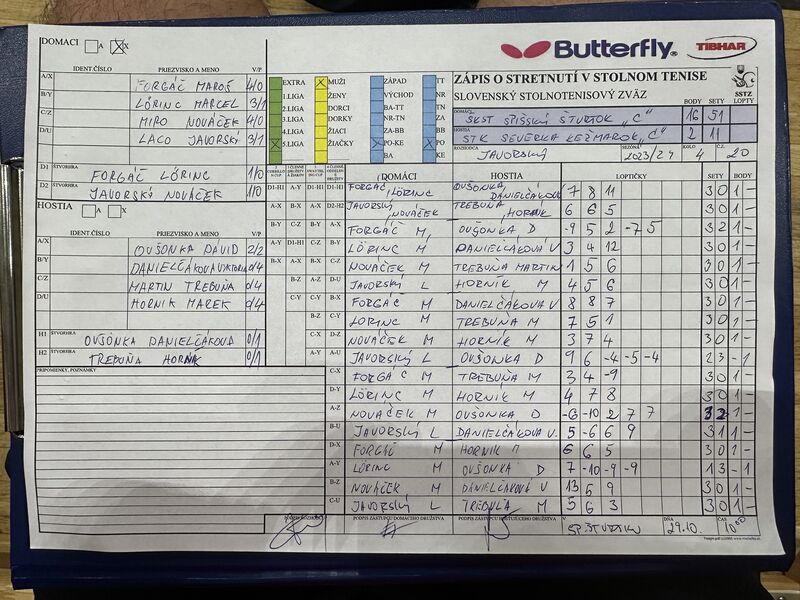 Butterfly
TIBHAR
ZÁPIS O STRETNUTÍ V STOLNOM TENISE
SLOVENSKÝ STOLNOTENISOVÝ ZVÄZ
SSTZ
DOMÁCI A X
IDENT.ČÍSLO PRIEZVISKO A MENO V/P
A/X FORGÁČ MAROŠ 4/0
B/Y LÖRINC MARCEL 3/1
C/Z MIRO NOVÁČEK 4/0
D/U LACO JAVORSKÝ 3/1
D1 ŠTVORHRA FORGÁČ LÖRINC 1/0
D2 ŠTVORHRA JAVORSKÝ NOVÁČEK 1/0
HOSTIA A X
IDENT.ČÍSLO PRIEZVISKO A MENO V/P
A/X OVŠONKA DAVID 2/2
B/Y DANIELČÁKOVÁ VIKTÓRIA 0/4
C/Z MARTIN TREBUŇA 0/4
D/U HORNÍK MAREK 0/4
H1 ŠTVORHRA OVŠONKA DANIELČÁKOVÁ 0/1
H2 ŠTVORHRA TREBUŇA HORNÍK 0/1
PRIPOMIENKY, POZNÁMKY
EXTRA MUŽI ZÁPAD TT
1.LIGA ŽENY VÝCHOD NR
2.LIGA DORCI BA-TT TN
3.LIGA DORKY NR-TN ZA
4.LIGA ŽIACI ZA-BB BB
5.LIGA ŽIAČKY PO-KE PO
BA KE
BODY SETY LOPTY
DOMÁCI: SKST SPIŠSKÝ ŠTVRTOK "C" 16 51
HOSTIA STK SEVERKA KEŽMAROK "C" 2 11
ROZHODCA JAVORSKÝ SEZÓNA 2023/24 KOLO 4 Č.Z. 20
DOMÁCI HOSTIA LOPTIČKY SETY BODY
FORGÁČ, LÖRINC OVŠONKA DANIELČÁKOVÁ 7 8 11 3 0 1 -
JAVORSKÝ, NOVÁČEK TREBUŇA HORNÍK 6 6 5 3 0 1 -
FORGÁČ M. OVŠONKA D -9 5 2 -7 5 3 2 1 -
LÖRINC M DANIELČÁKOVÁ V 3 4 12 3 0 1 -
NOVÁČEK M TREBUŇA MARTIN 1 5 6 3 0 1 -
JAVORSKÝ L HORNÍK M 4 5 6 3 0 1 -
FORGÁČ M DANIELČÁKOVÁ V 8 8 7 3 0 1 -
LÖRINC M TREBUŇA M 7 5 1 3 0 1 -
NOVÁČEK M HORNÍK M 3 7 4 3 0 1 -
JAVORSKÝ L OVŠONKA D 9 6 -4 -5 -4 2 3 - 1
FORGÁČ M TREBUŇA M 3 4 -9 3 0 1 -
LÖRINC M HORNÍK M 4 7 8 3 0 1 -
NOVÁČEK M OVŠONKA D -6 -10 2 7 7 3 2 1 -
JAVORSKÝ L DANIELČÁKOVÁ V. 5 -6 6 9 3 1 1 -
FORGÁČ M HORNÍK M 6 6 5 3 0 1 -
LÖRINC M OVŠONKA D 7 -10 -9 -9 1 3 - 1
NOVÁČEK M DANIELČÁKOVÁ V 13 5 9 3 0 1 -
JAVORSKÝ L TREBUŇA M 5 6 3 3 0 1 -
PODPIS ROZHODCU PODPIS ZÁSTUPCU DOMÁCEHO DRUŽSTVA PODPIS ZÁSTUPCU HOSŤUJÚCEHO DRUŽSTVA V DŇA 29.10. ČAS 10⁰⁰